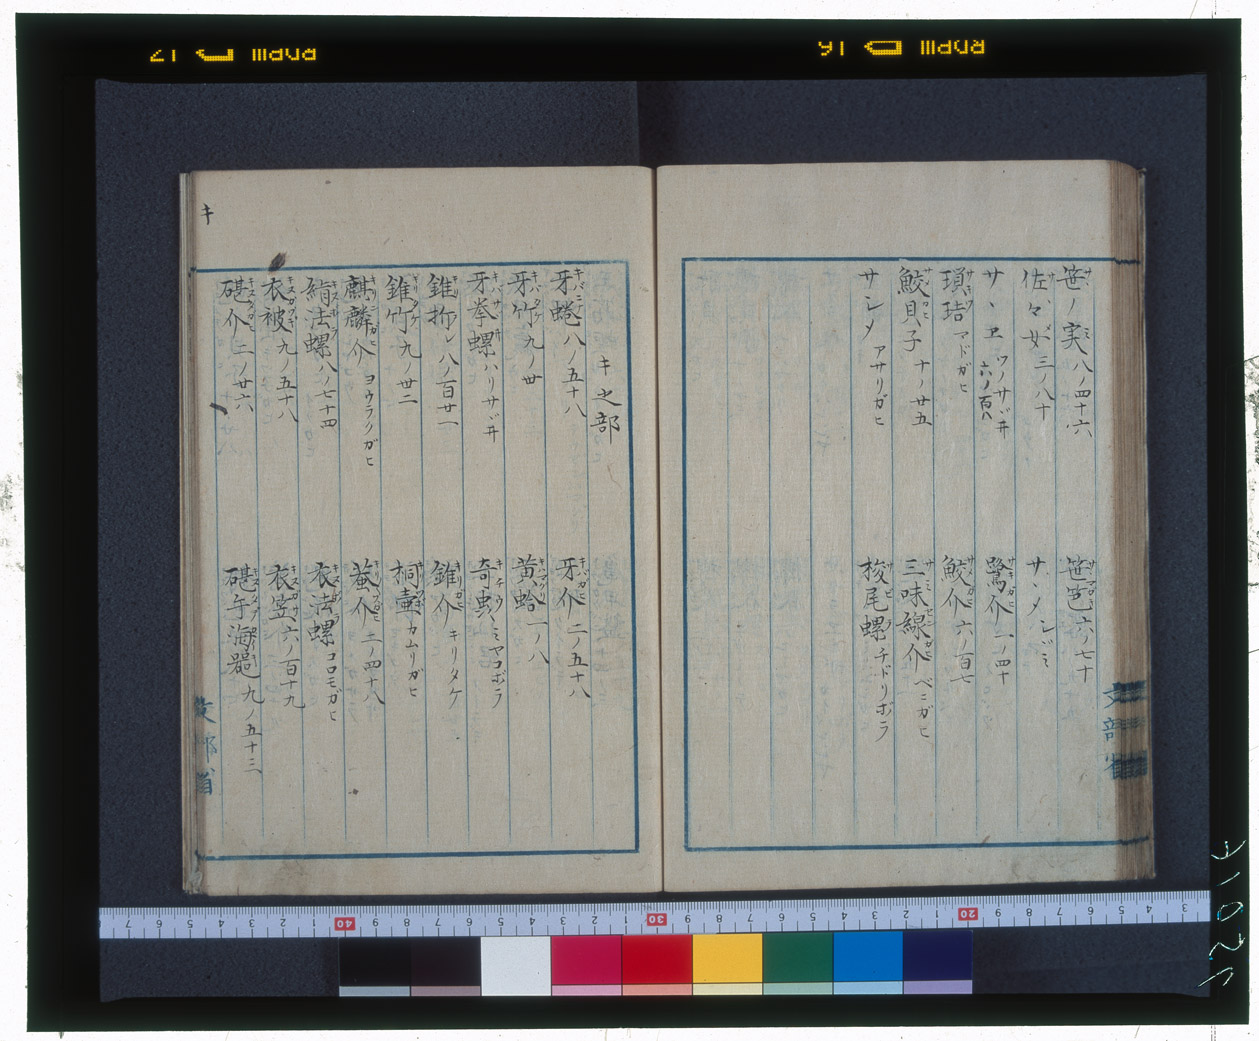 笹ノ実 八ノ四十六
佐々女 三ノ八十
サヽヱ ツノサヾヰ 六ノ百八
瑣琂 マドガヒ
鮫貝子 十ノ廿五
サンメ アサリガヒ
六ノ七十
サヽメンジミ
鷺介 一ノ四十
鮫介 六ノ百七
三味線介 ベニガヒ
梭尾螺 チドリボラ
文部省
キ之部
牙蜷 八ノ五十八
牙竹 九ノ卅
牙拳螺 ハリサヾヰ
八ノ百廿一
錐竹 九ノ卅二
麒麟介 ヨウラクガヒ
絹法螺 八ノ七十四
衣被 九ノ五十八
碪介 二ノ廿六
牙介 二ノ五十八
黄蛤 一ノ八
奇虫 ミヤコボラ
錐介 キリタケ
桐壷 カムリガヒ
二ノ四十八
衣法螺 コロモガヒ
衣笠 六ノ百十九
九ノ五十三
キ
文部省